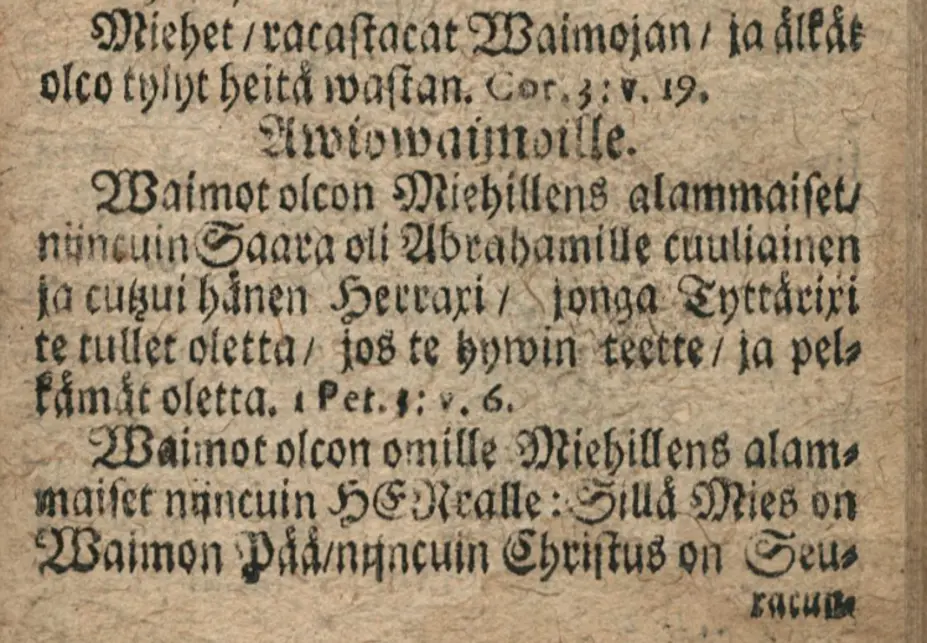 Miehet / racastacat Waimojan / ja älkät
olco tylyt heitä wastan. Cor. 3: v. 19.
Awiowaimoille.
Waimot olcon Miehillens alammaiset /
nijncuin Saara oli Abrahamille cuuliainen
ja cutzui hänen Herraxi / jonga Tyttärixi
te tullet oletta / jos te hywin teette / ja pel-
kämät oletta. 1 Pet. 3: v. 6.
Waimot olcon omille Miehillens alam-
maiset nijncuin HERralle: Sillä Mies on
Waimon Pää / nijncuin Christus on Seu-
racun-